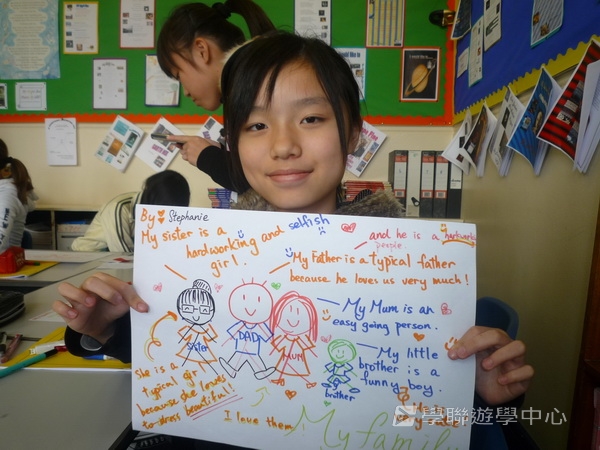 By Stephanie
My sister is a
hardworking and selfish
girl.
and he is a hardworking
people.
My Father is a typical father
because he loves us very much!
My Mum is an
easy going person.
My little
brother is a
funny boy.
sister
DAD
MUM
brother
She is a
typical girl
because she loves
to dress beautiful!!
I love them
My family
學聯遊學中心